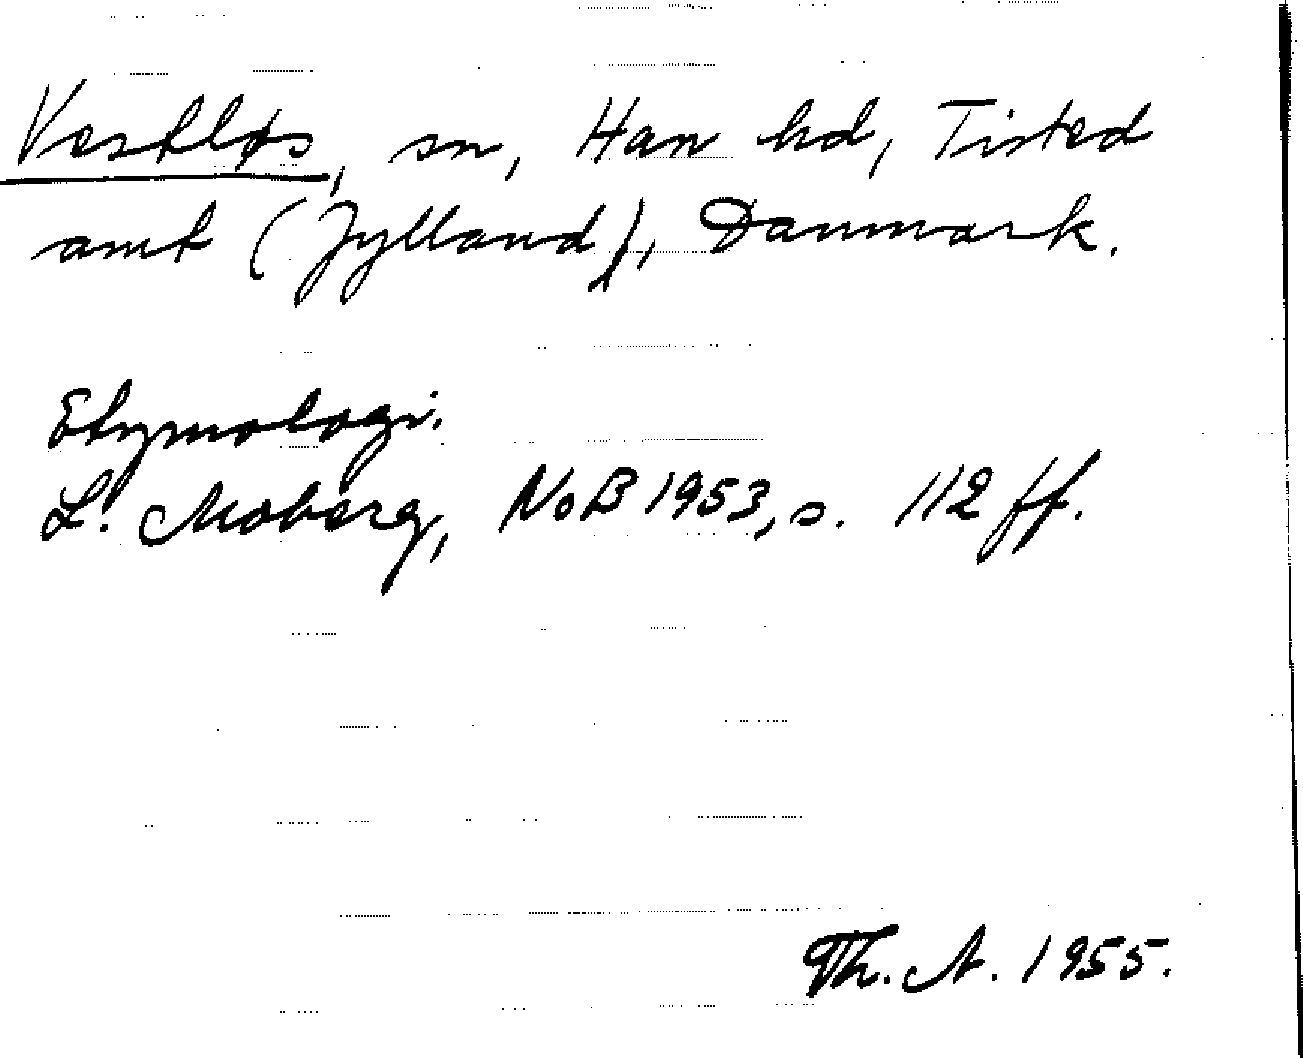 Vestløs, sn, Han hd, Tisted
amt (Jylland), Danmark.
Etymologi.
L. Moberg, NoB 1953, s. 112 ff.
Th. A. 1955.